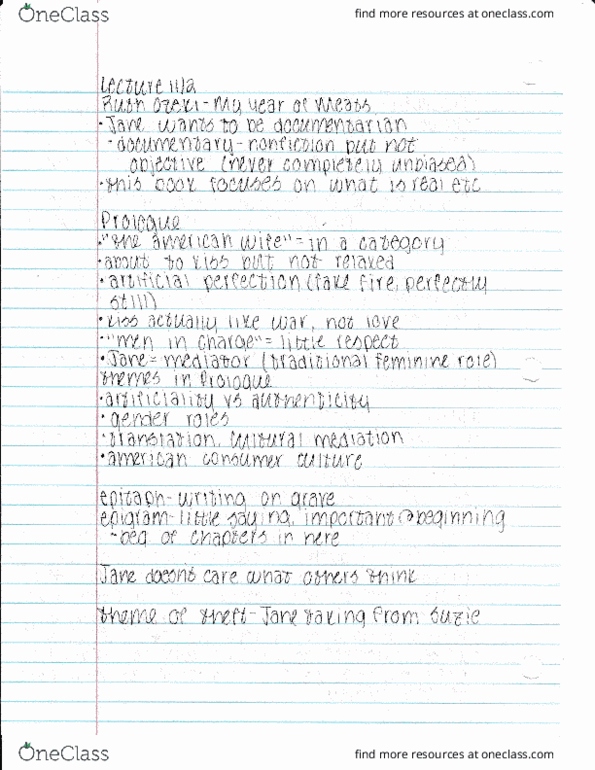 OneClass
find more resources at oneclass.com
Lecture 11/2
Ruth Ozeki - My Year of Meats
• Jane wants to be documentarian
- documentary - nonfiction but not
objective (never completely unbiased)
• this book focuses on what is real etc
Prologue
• "the american wife" = in a category
• about to kiss but not relaxed
• artificial perfection (fake fire, perfectly
still)
• kiss actually like war, not love
• "men in charge" = little respect
• Jane = mediator (traditional feminine role)
themes in Prologue
• artificiality vs authenticity
• gender roles
• translation, cultural mediation
• american consumer culture
epitaph - writing on grave
epigram - little saying, important @ beginning
- beg of chapters in here
Jane doesnt care what others think
theme of theft - Jane taking from Suzie
OneClass
find more resources at oneclass.com